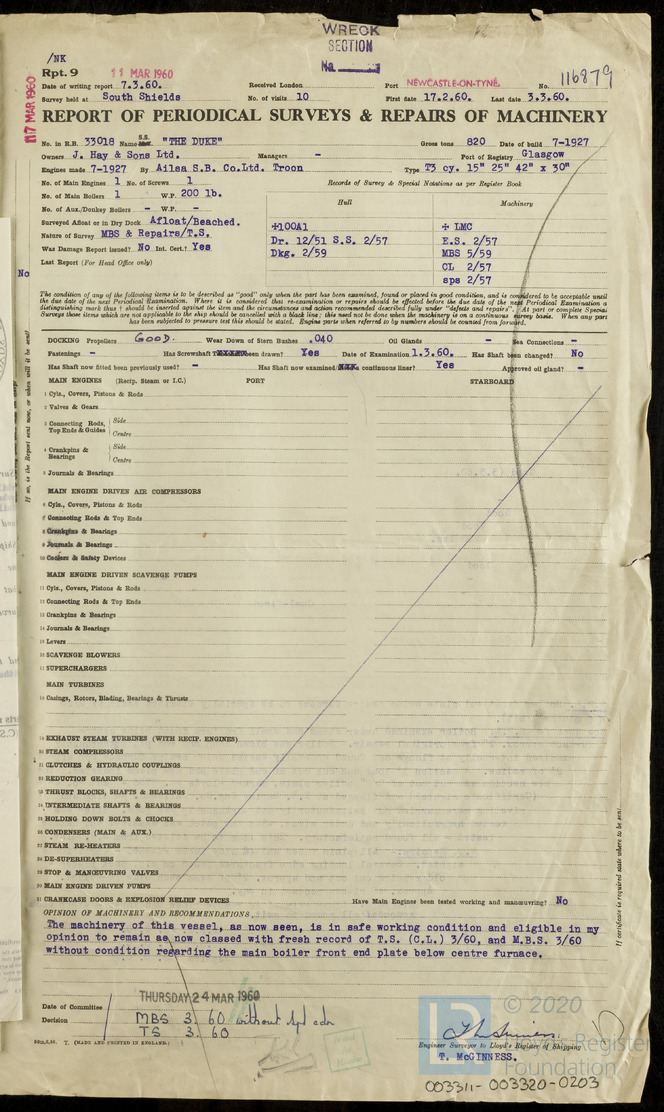 WRECK
SECTION
No.
/NK
Rpt. 9 11 MAR 1960
17 MAR 1960
Date of writing report 7.3.60. Received London Port NEWCASTLE-ON-TYNE. No. 116879
Survey held at South Shields No. of visits 10 First date 17.2.60. Last date 3.3.60.
REPORT OF PERIODICAL SURVEYS & REPAIRS OF MACHINERY
No. in R.B. 33018 Name S.S. "THE DUKE" Gross tons 820 Date of build 7-1927
Owners J. Hay & Sons Ltd. Managers - Port of Registry Glasgow
Engines made 7-1927 By Ailsa S.B. Co.Ltd. Troon Type T3 cy. 15" 25" 42" x 30"
No. of Main Engines 1 No. of Screws 1 Records of Survey & Special Notations as per Register Book
No. of Main Boilers 1 W.P. 200 lb. Hull Machinery
No. of Aux./Donkey Boilers - W.P. -
Surveyed Afloat or in Dry Dock Afloat/Beached. +100A1 + LMC
Nature of Survey MBS & Repairs/T.S. Dr. 12/51 S.S. 2/57 E.S. 2/57
Was Damage Report issued? No Int. Cert.? Yes Dkg. 2/59 MBS 5/59
Last Report (For Head Office only) CL 2/57
sps 2/57
No
If so, is the Report sent now, or when will it be sent?
The condition of any of the following items is to be described as "good" only when the part has been examined, found or placed in good condition, and is considered to be acceptable until
the due date of the next Periodical Examination. Where it is considered that re-examination or repairs should be effected before the due date of the next Periodical Examination a
distinguishing mark thus † should be inserted against the item and the circumstances and action recommended described fully under "defects and repairs". At part or complete Special
Surveys those items which are not applicable to the ship should be cancelled with a black line; this need not be done when the machinery is on a continuous survey basis. When any part
has been subjected to pressure test this should be stated. Engine parts when referred to by numbers should be counted from forward.
DOCKING Propellers GOOD. Wear Down of Stern Bushes .040 Oil Glands - Sea Connections -
Fastenings - Has Screwshaft been drawn? Yes Date of Examination 1.3.60. Has Shaft been changed? No
Has Shaft now fitted been previously used? - Has Shaft now examined a continuous liner? Yes Approved oil gland? -
MAIN ENGINES (Recip. Steam or I.C.) PORT STARBOARD
1 Cyls., Covers, Pistons & Rods
2 Valves & Gears
3 Connecting Rods, Top Ends & Guides Side
Centre
4 Crankpins & Bearings Side
Centre
5 Journals & Bearings
MAIN ENGINE DRIVEN AIR COMPRESSORS
6 Cyls., Covers, Pistons & Rods
7 Connecting Rods & Top Ends
8 Crankpins & Bearings
9 Journals & Bearings
10 Coolers & Safety Devices
MAIN ENGINE DRIVEN SCAVENGE PUMPS
11 Cyls., Covers, Pistons & Rods
12 Connecting Rods & Top Ends
13 Crankpins & Bearings
14 Journals & Bearings
15 Levers
16 SCAVENGE BLOWERS
17 SUPERCHARGERS
MAIN TURBINES
18 Casings, Rotors, Blading, Bearings & Thrusts
19 EXHAUST STEAM TURBINES (WITH RECIP. ENGINES)
20 STEAM COMPRESSORS
21 CLUTCHES & HYDRAULIC COUPLINGS
22 REDUCTION GEARING
23 THRUST BLOCKS, SHAFTS & BEARINGS
24 INTERMEDIATE SHAFTS & BEARINGS
25 HOLDING DOWN BOLTS & CHOCKS
26 CONDENSERS (MAIN & AUX.)
27 STEAM RE-HEATERS
28 DE-SUPERHEATERS
29 STOP & MANŒUVRING VALVES
30 MAIN ENGINE DRIVEN PUMPS
31 CRANKCASE DOORS & EXPLOSION RELIEF DEVICES Have Main Engines been tested working and manœuvring? No
If certificate is required state where to be sent.
OPINION OF MACHINERY AND RECOMMENDATIONS.
The machinery of this vessel, as now seen, is in safe working condition and eligible in my
opinion to remain as now classed with fresh record of T.S. (C.L.) 3/60, and M.B.S. 3/60
without condition regarding the main boiler front end plate below centre furnace.
THURSDAY 24 MAR 1960
Date of Committee
Decision MBS 3.60 without spl cdn
TS 3.60
Engineer Surveyor to Lloyd's Register of Shipping
T. McGINNESS.
T. (MADE AND PRINTED IN ENGLAND.)
© 2020
Lloyd's Register
Foundation
003311-003320-0203